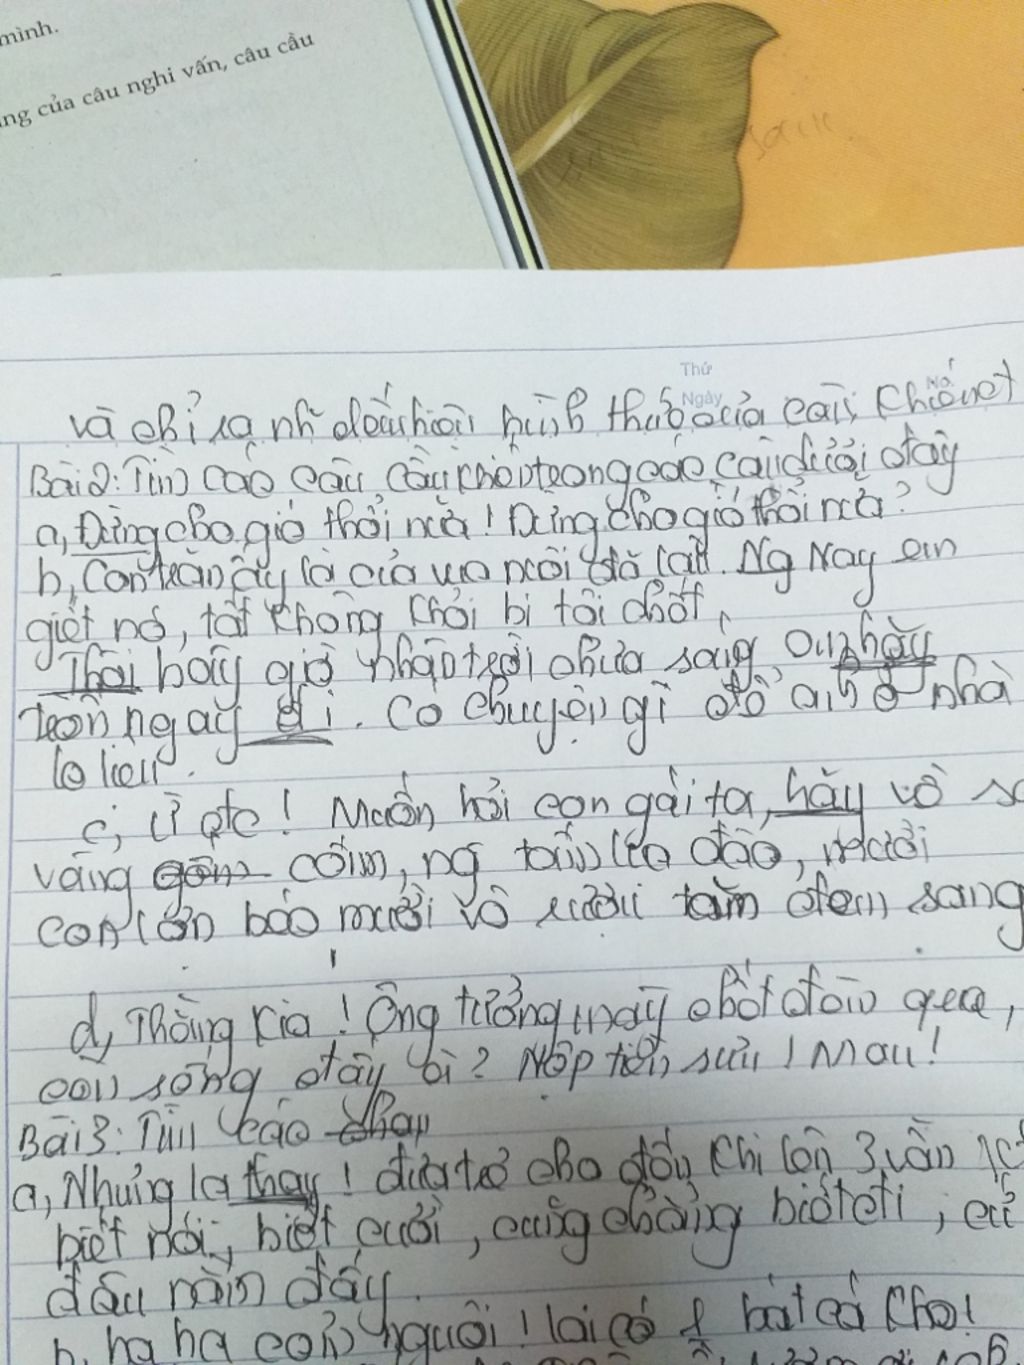 mình.
ng của câu nghi vấn, câu cầu
Thứ
Ngày
và chỉ ra nh dấu hiệu hình thức của câu khiến
Bài 2: Tìm các câu cầu khiến trong các câu dưới đây
a, Đừng cho gió thổi nữa! Đừng cho gió thổi nữa?
b, Con trăn ấy là của vua nuôi đã lâu. Ng Nay em
giết nó, tất không khỏi bị tội chết,
Thôi bây giờ nhân trời chưa sáng, hãy
trốn ngay đi. Có chuyện gì để anh ở nhà
lo liệu.
c, Ừ được! Muốn hỏi con gái ta, hãy về
vàng cốm, ng tấm lụa đào, mười
con lợn béo mười vò rượu tăm đem sang
d, Thằng kia! Ông tưởng mày chết đêm qua,
còn sống đấy à? Nộp tiền sưu! Mau!
Bài 3: Tìm các
a, Nhưng lạ thay! đứa trẻ cho đến khi lên 3 vẫn
biết nói, biết cười, cũng chẳng biết đi, cứ
đâu nằm đấy.
b, ha ha con người! lại có bát cá kho!